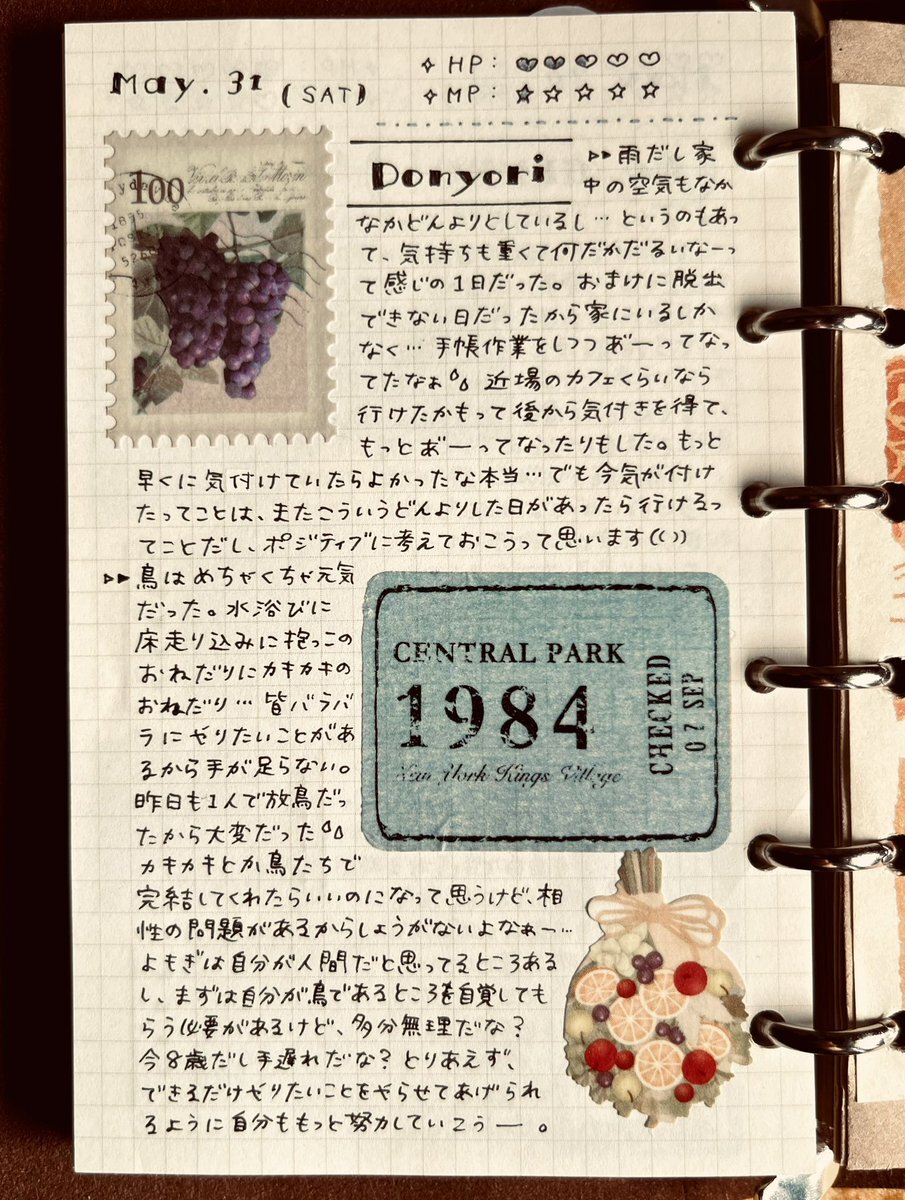 May. 31 (SAT)
✧ HP: ♥♥♥♡♡
✧ MP: ★☆☆☆☆
100
Donyori
▷▶雨だし家
中の空気もなか
なかどんよりとしているし…というのもあっ
て、気持ちも重くて何だかだるいなーっ
て感じの1日だった。おまけに脱出
できない日だったから家にいるしか
なく…手帳作業をしつつあ゛ーってなっ
てたなぁ 近場のカフェくらいなら
行けたかもって後から気付きを得て、
もっとあ゛ーってなったりもした。もっと
早くに気付けていたらよかったな本当…でも今気が付け
たってことは、またこういうどんよりした日があったら行けるっ
てことだし、ポジティブに考えておこうって思います(())
▷▶鳥はめちゃくちゃ元気
だった。水浴びに
床走り込みに抱っこの
おねだりにカキカキの
おねだり…皆バラバ
ラにやりたいことがあ
るから手が足らない。
昨日も1人で放鳥だっ
たから大変だった
カキカキとか鳥たちで
完結してくれたらいいのになって思うけど、相
性の問題があるからしょうがないよなぁー…
よもぎは自分が人間だと思ってるところある
し、まずは自分が鳥であるところを自覚しても
らう必要があるけど、多分無理だな?
今8歳だし手遅れだな?とりあえず、
できるだけやりたいことをやらせてあげられ
るように自分ももっと努力していこうー。
CENTRAL PARK
1984
New York Kings Village
CHECKED
07 SEP